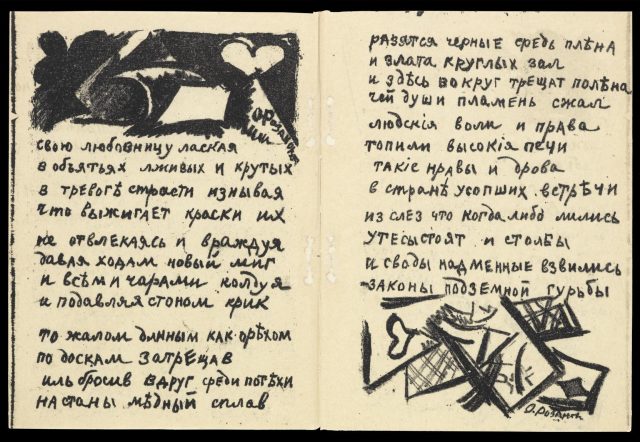 О. Розанова
свою любовницу лаская
в объятьях лживых и крутых
в тревогѣ страсти изнывая
что выжигает краски их
не отвлекаясь и враждуя
давая ходам новый миг
и всѣми чарами колдуя
и подавляя стоном крик
то жалом длинным как орѣхом
по доскам затрещав
иль бросив вдруг среди потѣхи
на станы мѣдный сплав
разятся черные средь плѣна
и злата круглых зал
и здѣсь вокруг трещат полѣна
чей души пламень сжал
людскія воли и права
топили высокія печи
такіе нравы и дрова
в странѣ усопших встрѣчи
из слез что когда либо лились
утесы стоят и столбы
и своды надменные взвились
законы подземной гурьбы
О. Розанова